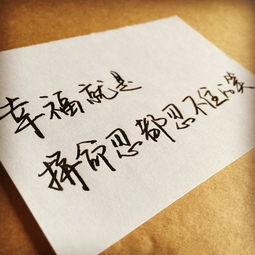 幸福就是
拼命忍都忍不住淚